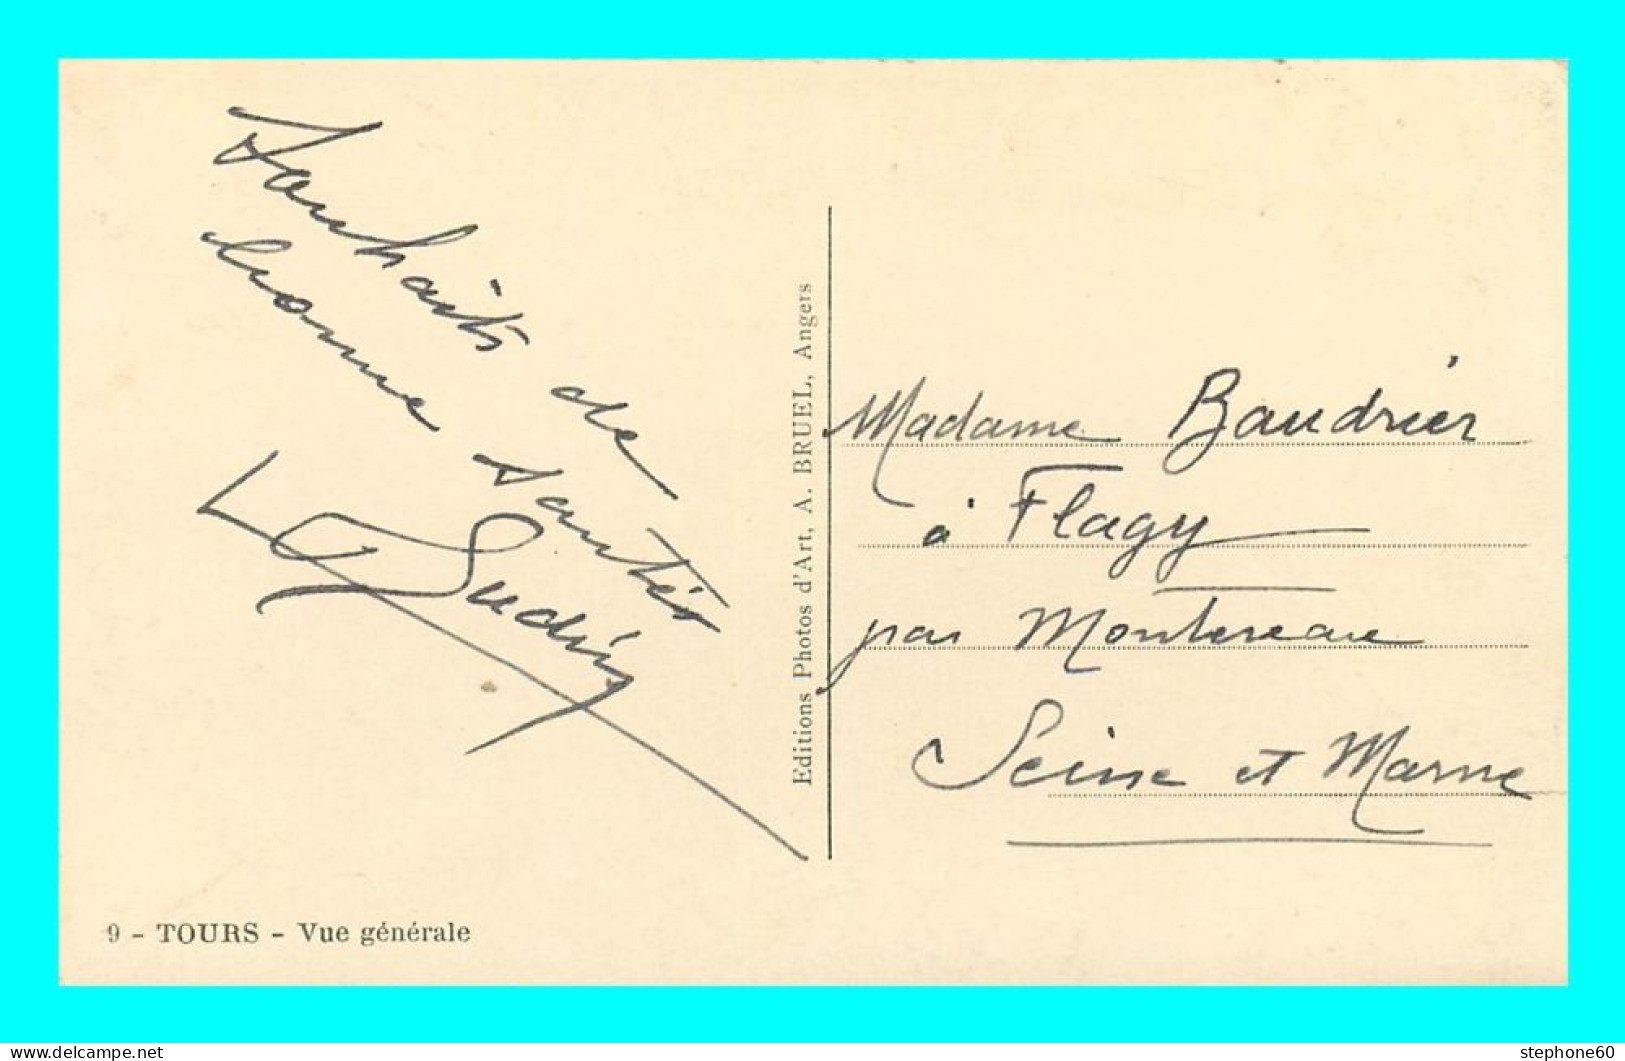 Souhaits de
bonne santés
Sudrig
Editions Photos d'Art, A. BRUEL, Angers
Madame Baudrier
à Flagy
par Montereau
Seine et Marne
9 - TOURS - Vue générale
stephone60